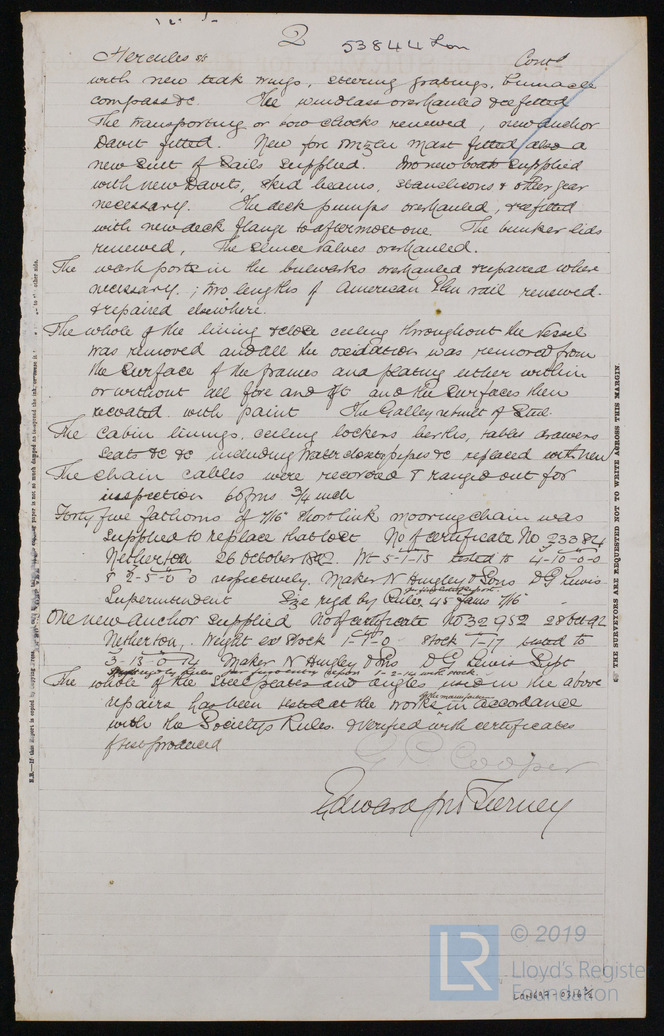 2
53844 Lon
Hercules SS Contd
with new teak wings, steering gratings, binnacle
compass &c. The windlass overhauled & refitted
The transporting or bow chocks renewed, new anchor
Davit fitted. New fore mizen mast fitted also a
new suit of Sails supplied. Two new boats supplied
with new Davits, skid beams, stanchions & other gear
necessary. The deck pumps overhauled, & refitted
with new deck flange to aftermost one. The bunker lids
renewed, The Sluice Valves overhauled.
The wash ports in the bulwarks overhauled & repaired where
necessary.; two lengths of American Elm rail renewed.
& repaired elsewhere.
The whole of the lining & close ceiling throughout the Vessel
was removed and all the oxidation was removed from
the surface of the frames and plating either within
or without all fore and aft and the surfaces then
recoated with paint The Galley rebuilt of Steel.
The cabin linings, ceiling lockers berths, tables drawers
seats &c &c including Water closets pipes &c replaced with new
The chain cables were recorded & ranged out for
inspection 60 fms 3/4 inch
Forty five fathoms of 7/16 short link mooring chain was
supplied to replace that lost No of certificate No 23384
Netherton 26 October 1892. Wt 5-1-15 tested to 4-10-0-0
& 2-5-0-0 respectively. Maker N Hingley & Sons D G Lewis
Superintendent Size reqd by Rules 45 fams 7/16
One new anchor supplied No of certificate No 32952 28 Oct 92
Netherton, Weight ex Stock 1-1-0 Stock 1-17 tested to
3-13-0-14 Maker N Hingley & Sons D G Lewis Supt
The whole of the steel plates and angles used in the above
repairs has been tested at the works in accordance
of the manufacturer
with the Society's Rules. & Verified with certificates
of test produced
G C Cooper
Edward Jno Tierney
THE SURVEYORS ARE REQUESTED NOT TO WRITE ACROSS THIS MARGIN.
© 2019
LR
Lloyd's Register
Foundation